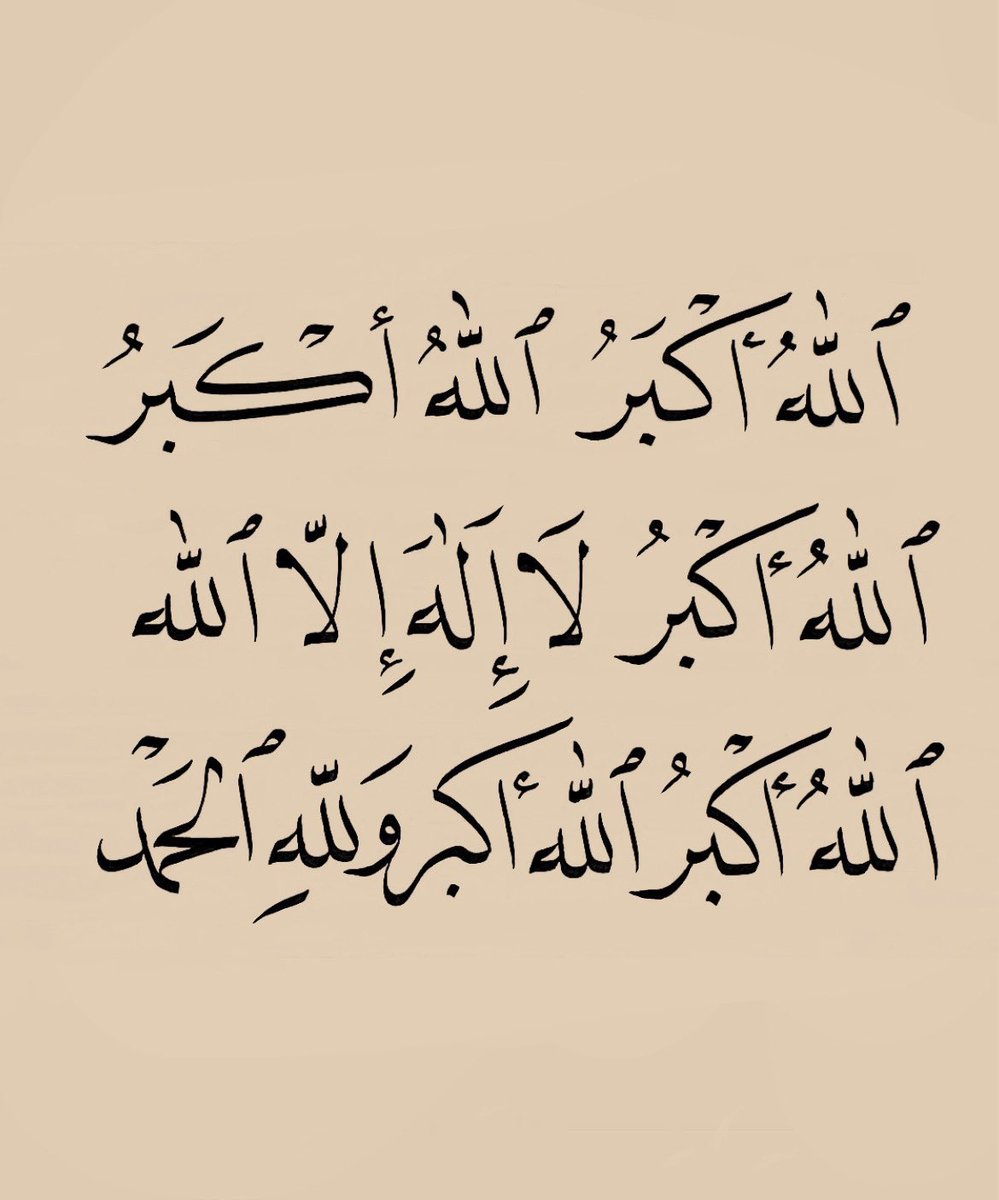 ٱللّٰهُ أَكْبَرُ ٱللّٰهُ أَكْبَرُ
ٱللّٰهُ أَكْبَرُ لَا إِلٰهَ إِلّا ٱللّٰه
ٱللّٰهُ أَكْبَرُ ٱللّٰه أكبر وَلِلّٰهِ ٱلحَمْد